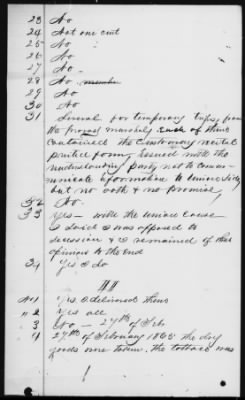 23 No
24 Not one cent
25 No
26 No
27 No
28 No member
29 No
30 No
31 Several for temporary trips, from
the provost marshal, each of them
contained the customary
printed form, issued with the
understanding party not to commu-
nicate information to
but no oath & no promise
32 No.
33 Yes – with the union cause
I said I was opposed to
secession & I remained of that
opinion to the end
34 Yes I do
No 1 Yes I delivered them
" 2 Yes all
3 No – 27th of Feb
4 27th of February 1865 the dry
goods were taken, the tobacco was